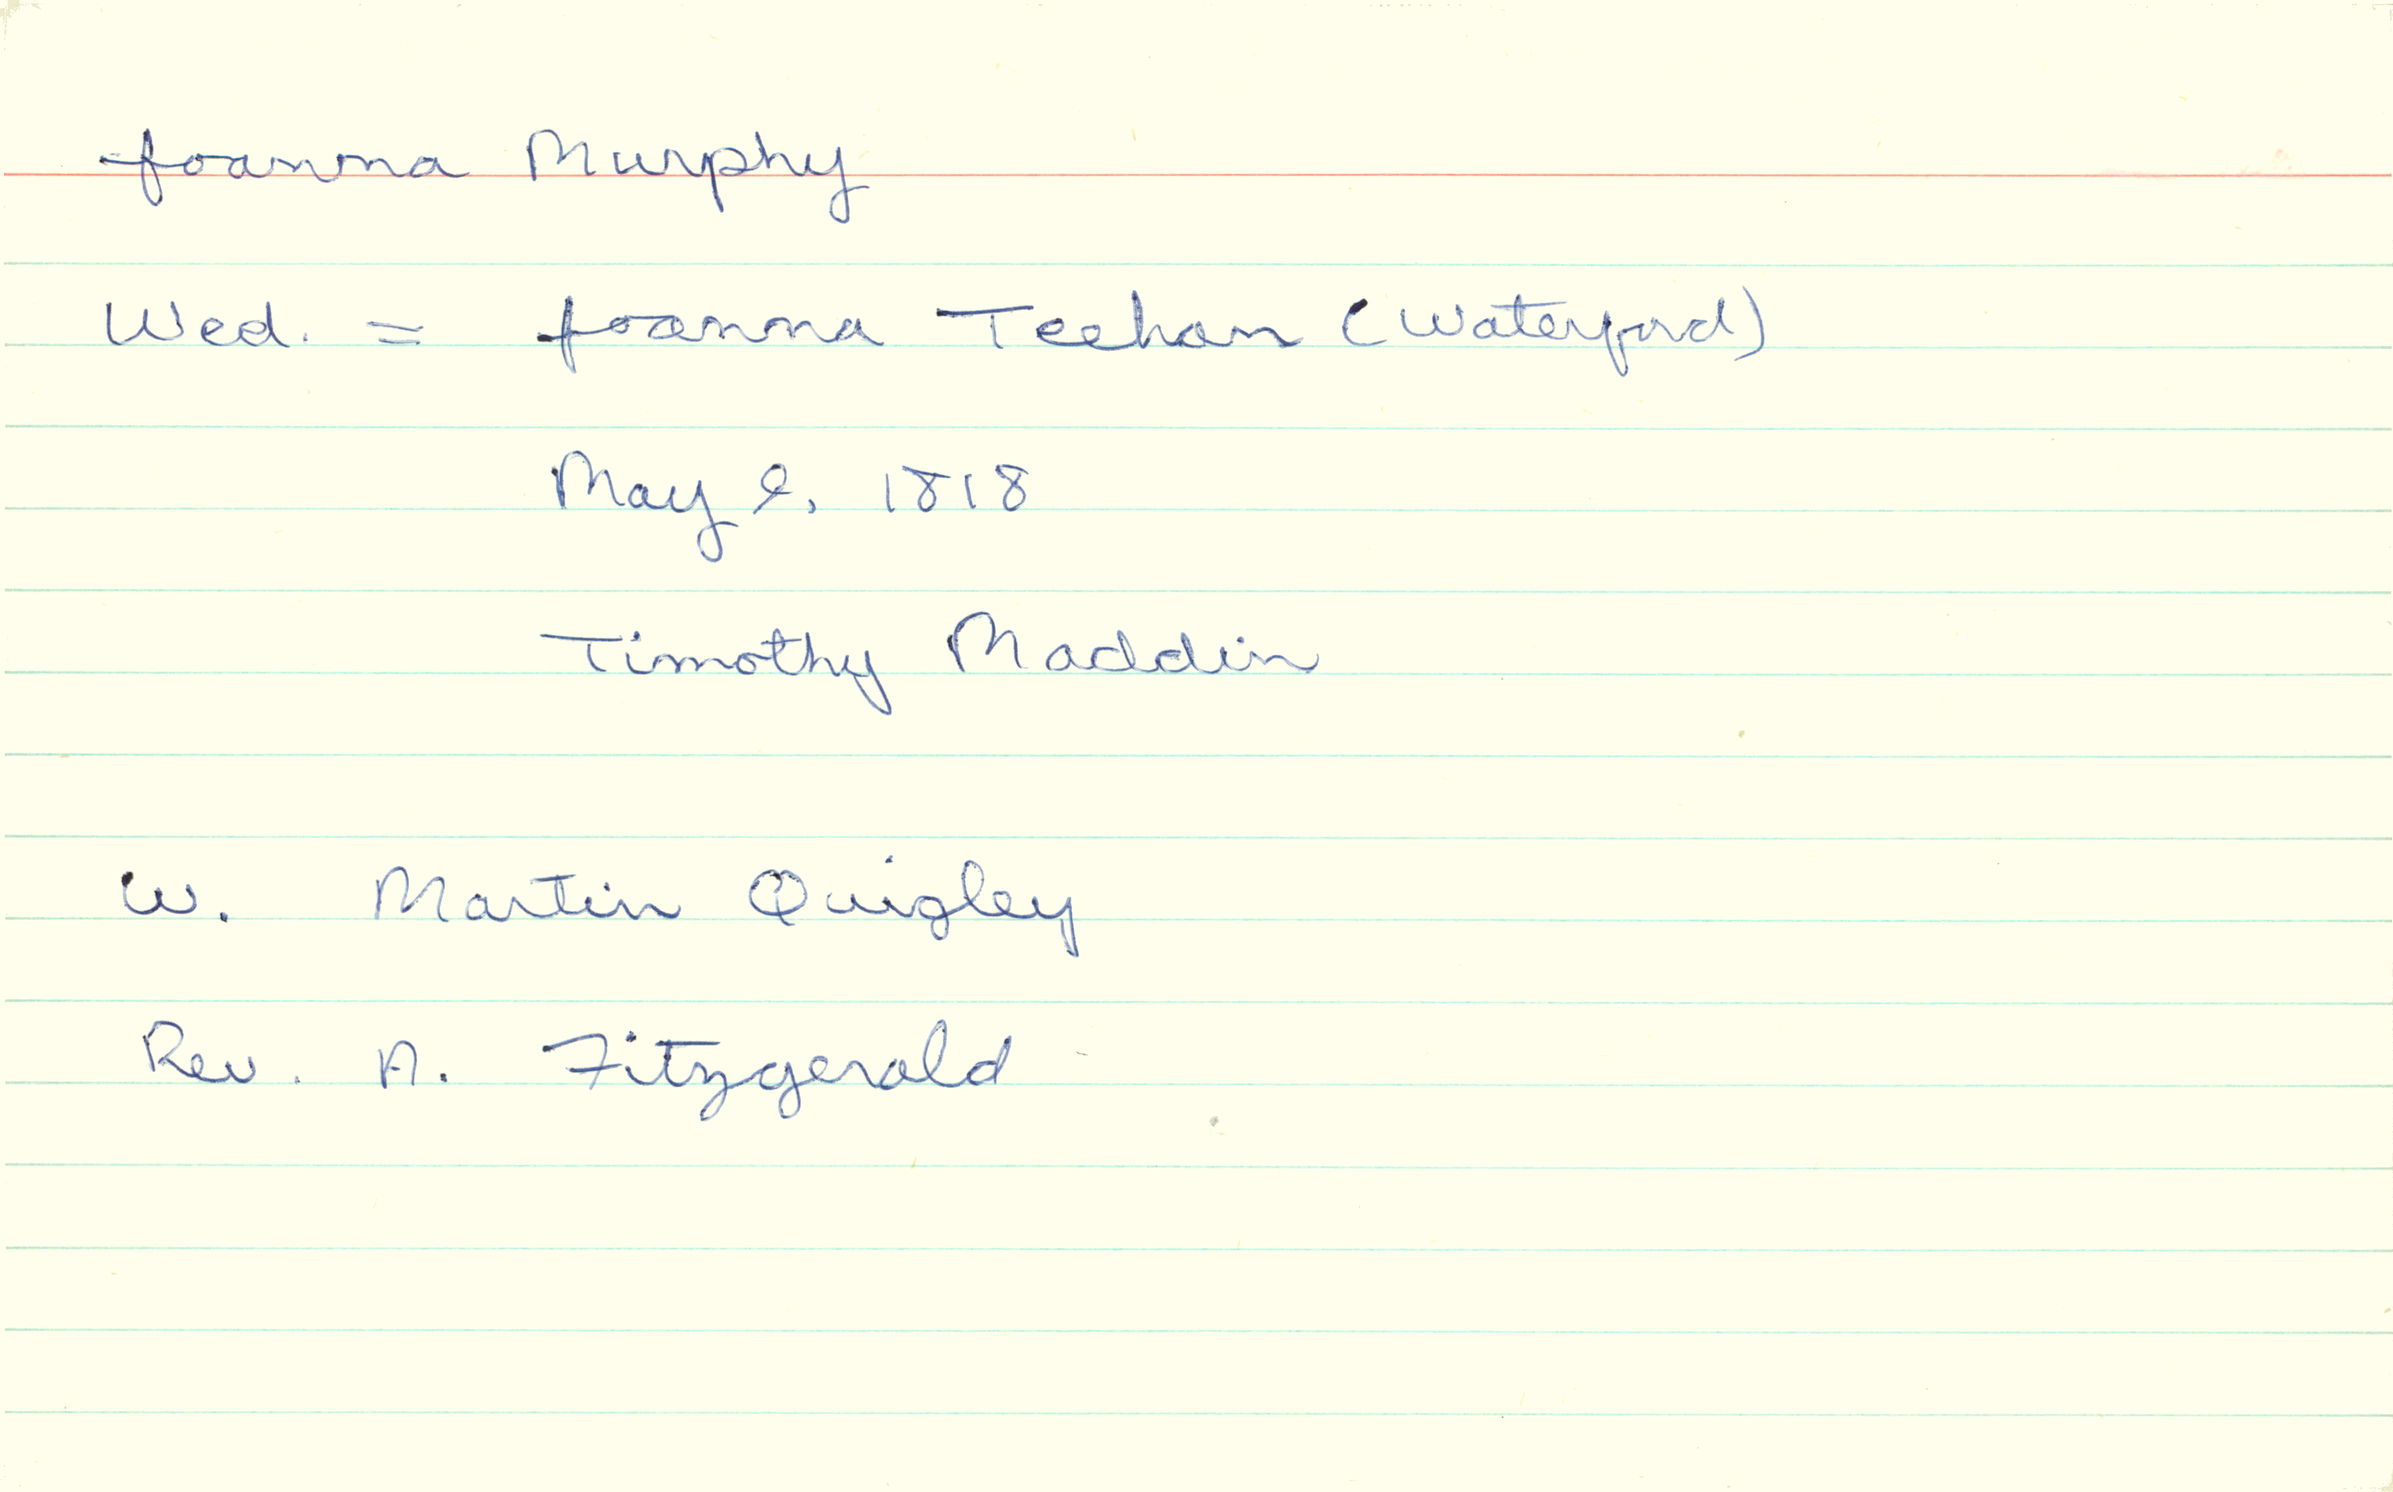 Joanna Murphy
Wed. = Joanna Teehan (Waterford)
May 2, 1818
Timothy Maddin
W. Martin Quigley
Rev. A. Fitzgerald